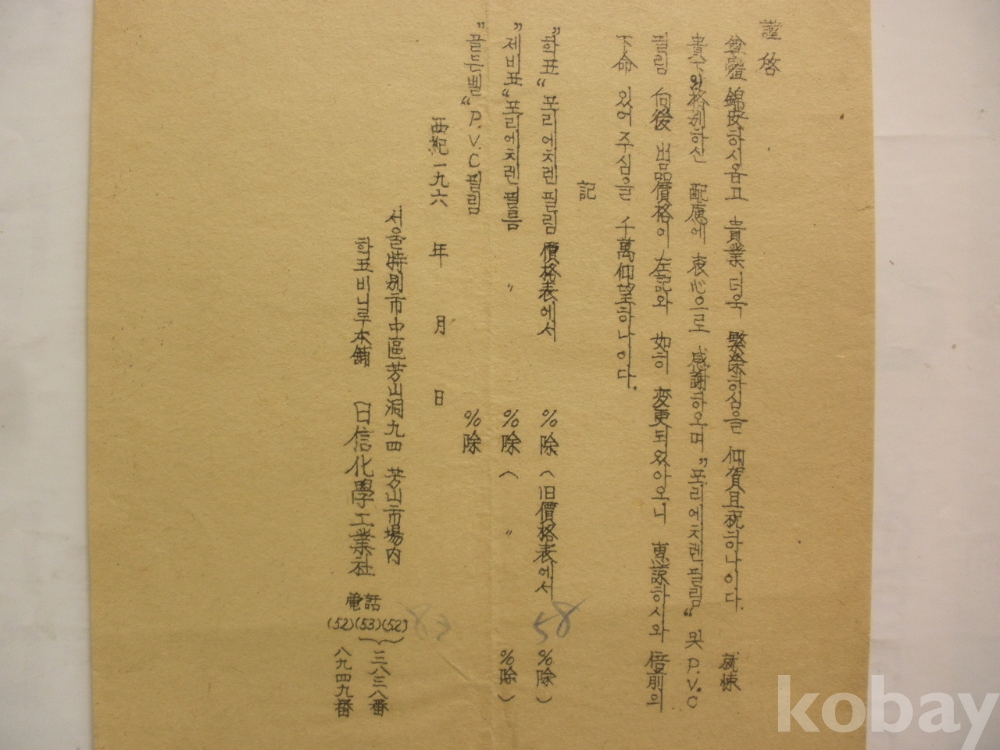 謹啓
尊體 錦安하시옵고 貴業 더욱 繁榮하심을 仰賀且祝하나이다. 就悚
貴下의 格別하신 配慮에 衷心으로 感謝하오며 "포리에치렌필림" 및 P.V.C
필림 向後 出品價格이 左記와 如히 変更되었아오니 惠諒하시와 倍前의
下命 있어 주심을 千萬仰望하나이다.
記
"학표" 포리에치렌필림 價格表에서 %除 (旧價格表에서 %除)
"제비표" 포리에치렌필름 〃 %除 ( 〃 %除)
"골든벨" P.V.C필림 %除
58
58
西紀一九六 年 月 日
서울特別市中區芳山洞九四 芳山市場内
학표비니루本鋪 日信化學工業社
電話
(52)(53)(52)
三八三八番
八九四九番
kobay